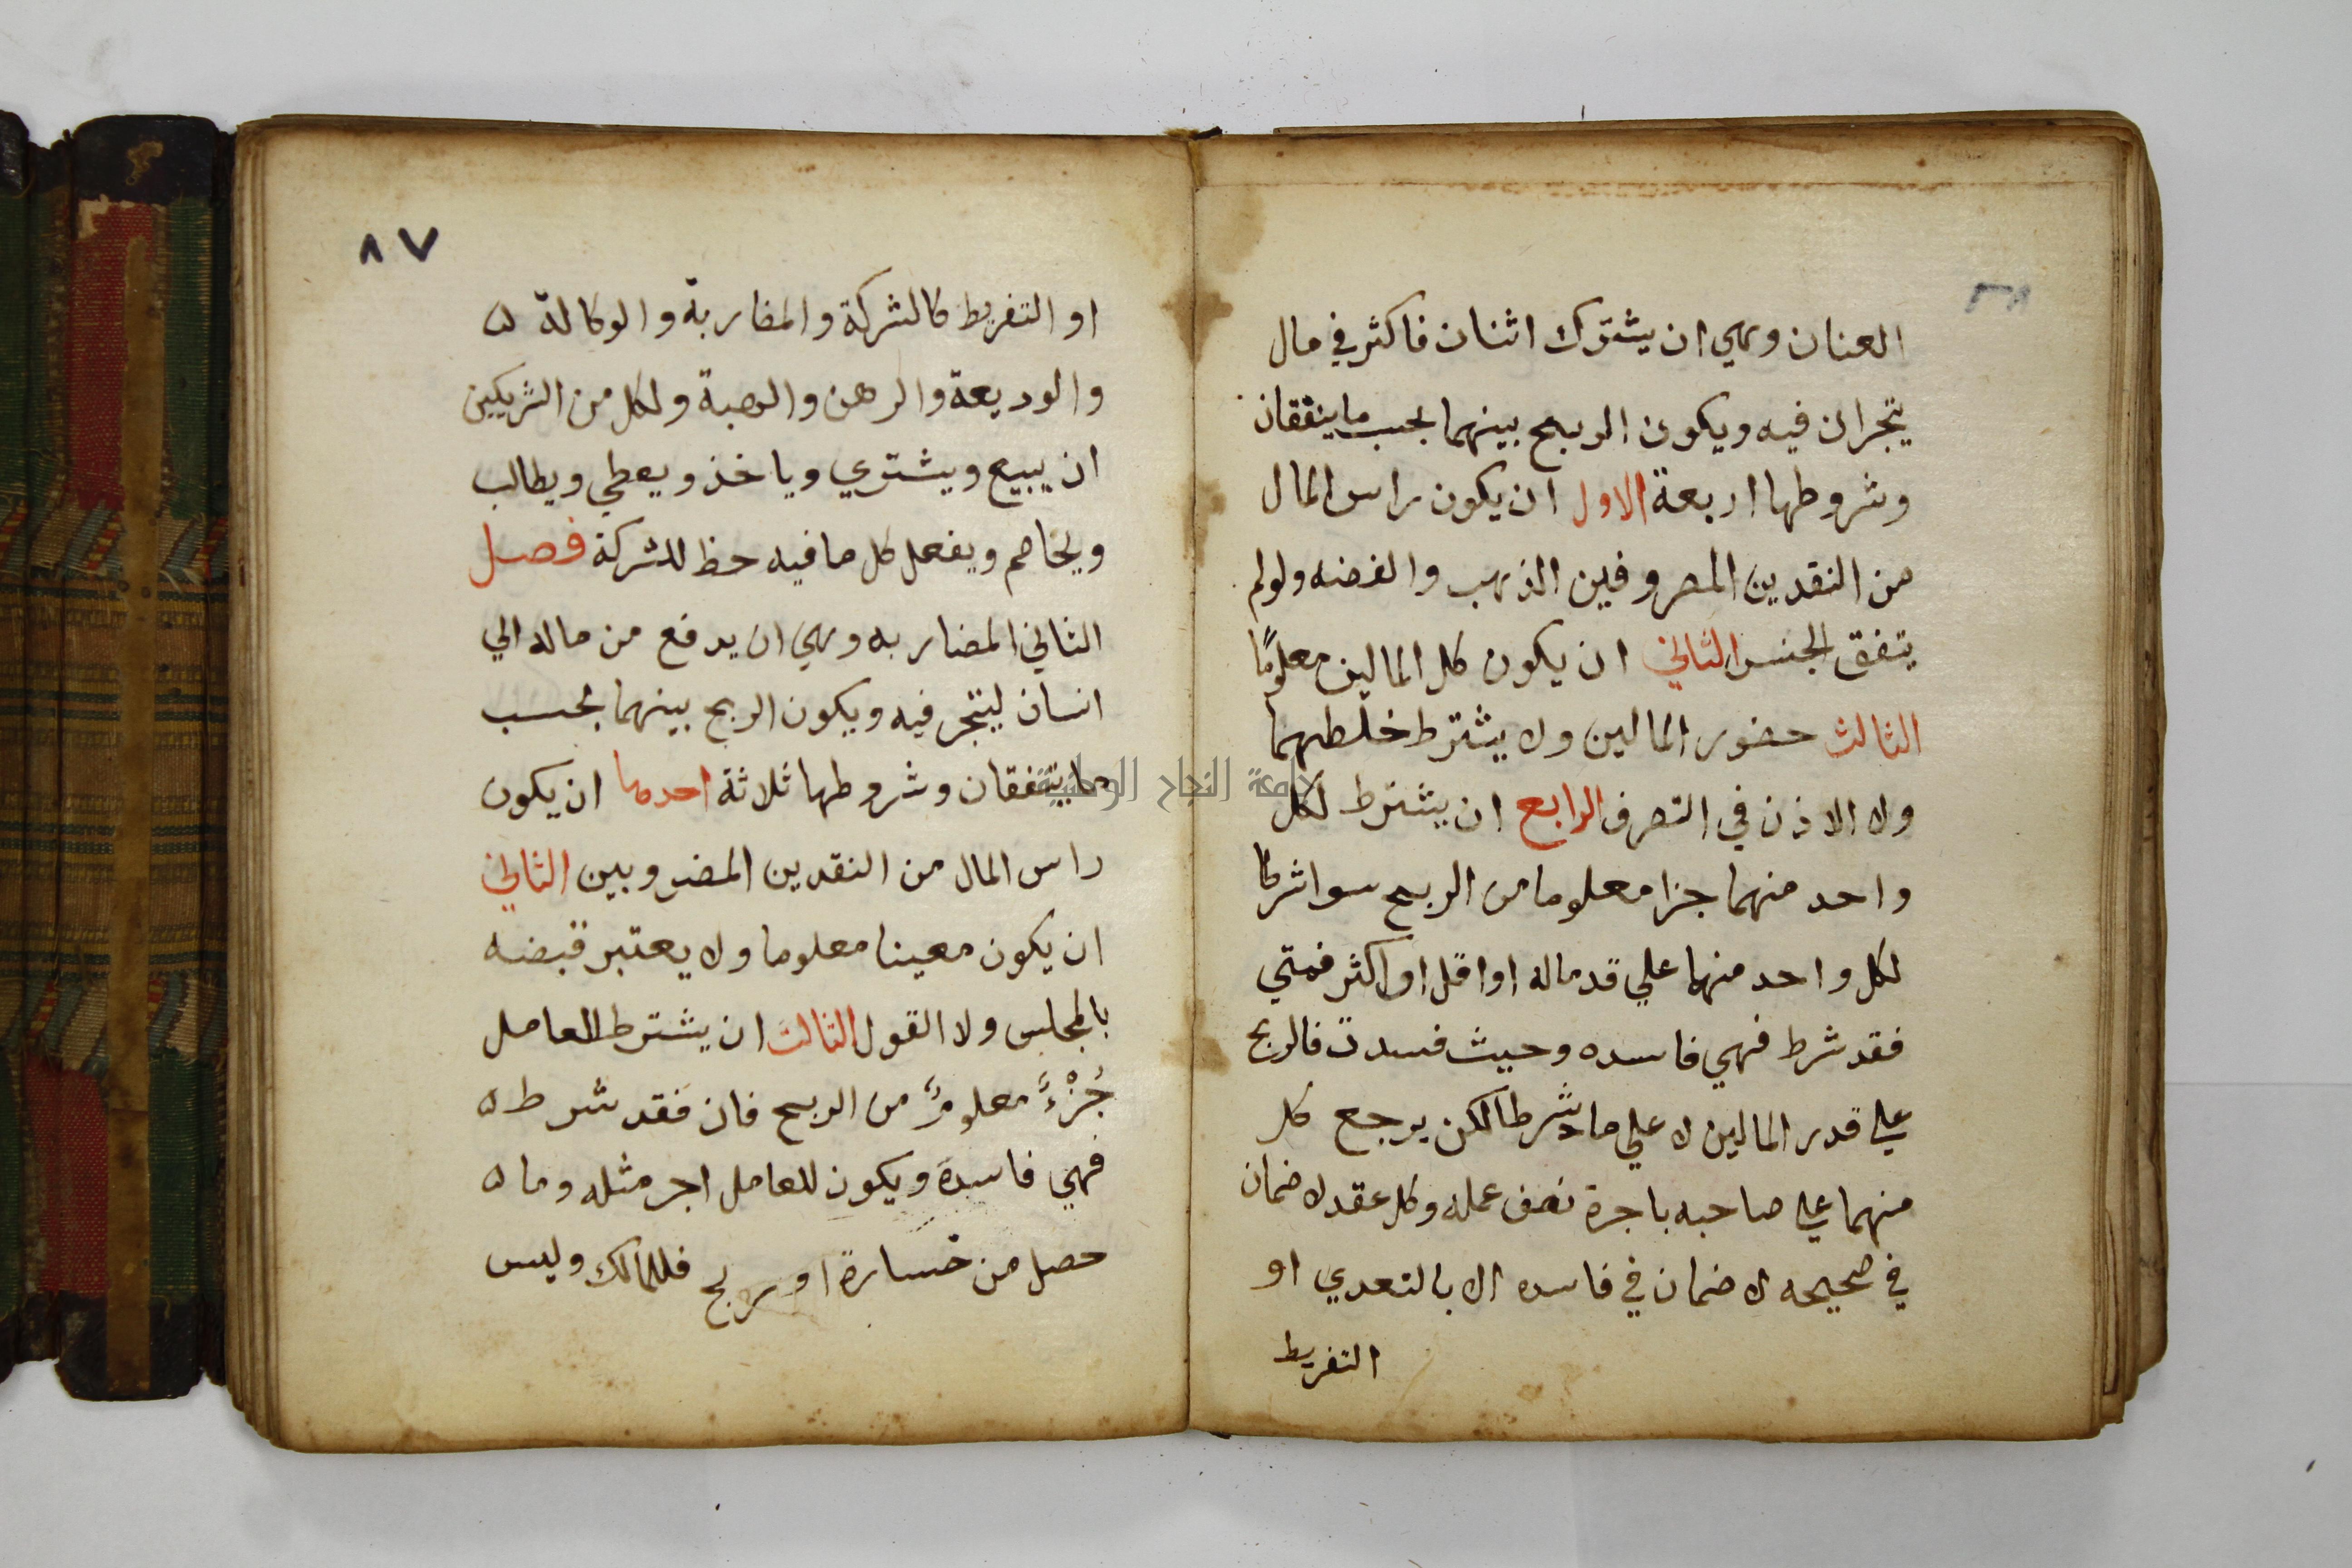 العنان وهي ان يشترك اثنان فاكثر في مال
يتجران فيه ويكون الربح بينهما بحسب ما يتفقان
وشروطها اربعة الاول ان يكون راس المال
من النقدين المضروفين الذهب والفضه ولو لم
يتفق الجنس الثاني ان يكون كل المالين معلومًا
الثالث حضور المالين ولا يشترط خلطهما
ولا الاذن في التصرف الرابع ان يشترط لكل
واحد منهما جزا معلوما من الربح سوا شرطا
لكل واحد منهما علي قد ماله او اقل او اكثر فمتي
فقد شرط فهي فاسده وحيث فسدت فالربح
علي قدر المالين لا علي ما شرطا لكن يرجع كل
منهما علي صاحبه باجرة نصف عمله وكل عقد لا ضمان
في صحيحه لا ضمان في فاسده الا بالتعدي او
التفريط
٨٧
او التفريط كالشركة والمضاربة والوكالة ه
والوديعة والرهن والهبة ولكل من الشريكين
ان يبيع ويشتري وياخذ ويعطي ويطالب
ويخاصم ويفعل كل ما فيه حظ للشركة فصل
الثاني المضاربه وهي ان يدفع من ماله الي
انسان ليتجر فيه ويكون الربح بينهما بحسب
ما يتفقان وشروطها ثلاثة احدها ان يكون
راس المال من النقدين المضروبين الثاني
ان يكون معينا معلوما ولا يعتبر قبضه
بالمجلس ولا القول الثالث ان يشترط للعامل
جُزْءً معلومٌ من الربح فان فقد شرط ه
فهي فاسدة ويكون للعامل اجر مثله وما ه
حصل من خسارة او ربح فللمالك وليس
جامعة النجاح الوطنية